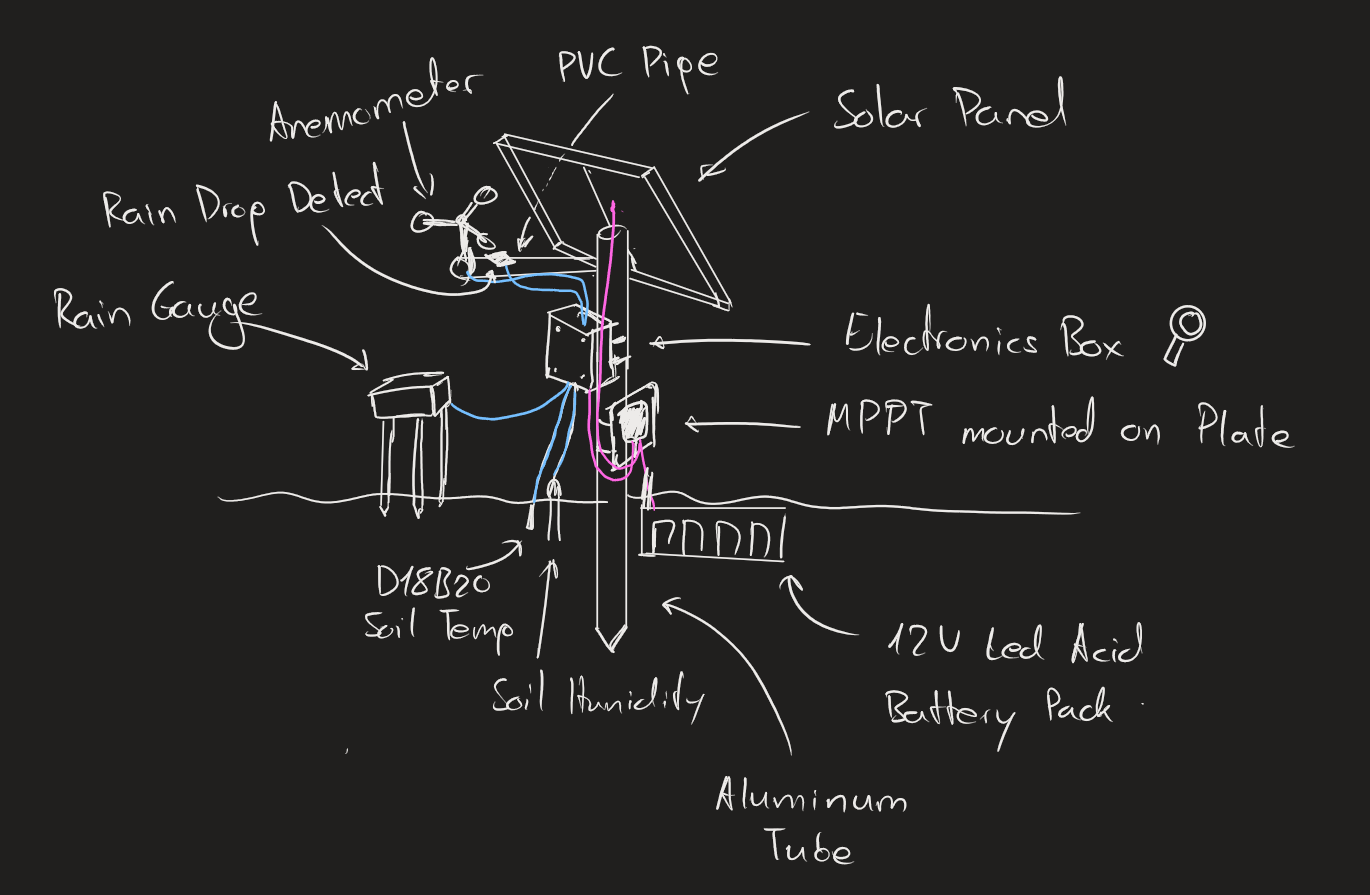 PVC Pipe
Anemometer
Solar Panel
Rain Drop Detect
Rain Gauge
Electronics Box
MPPT mounted on Plate
D18B20
Soil Temp
Soil Humidity
12V Led Acid
Battery Pack
Aluminum
Tube